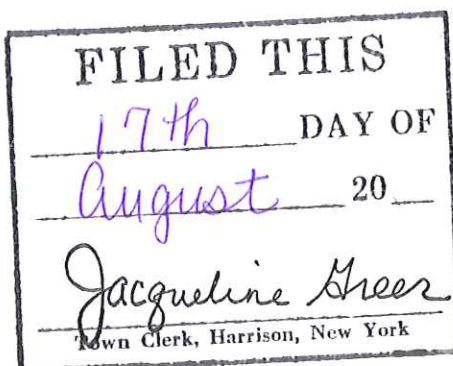 FILED THIS
17th DAY OF
August 20__
Jacqueline Greer
Town Clerk, Harrison, New York